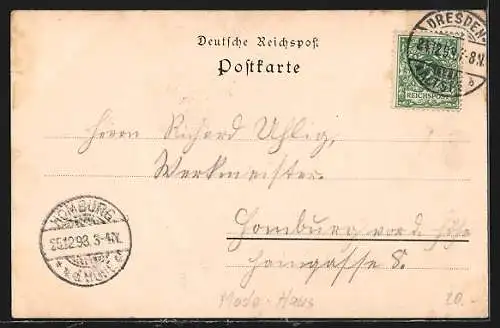 Deutsche Reichspost
Postkarte
DRESDEN
24.12.93. 7-8.N.
REICHSPOST
Herrn Richard Uhlig,
Werkmeister.
Homburg vor d. Höhe
Haingasse 8.
HOMBURG
25.12.93. 3-4N.
Mode-Haus
20.-